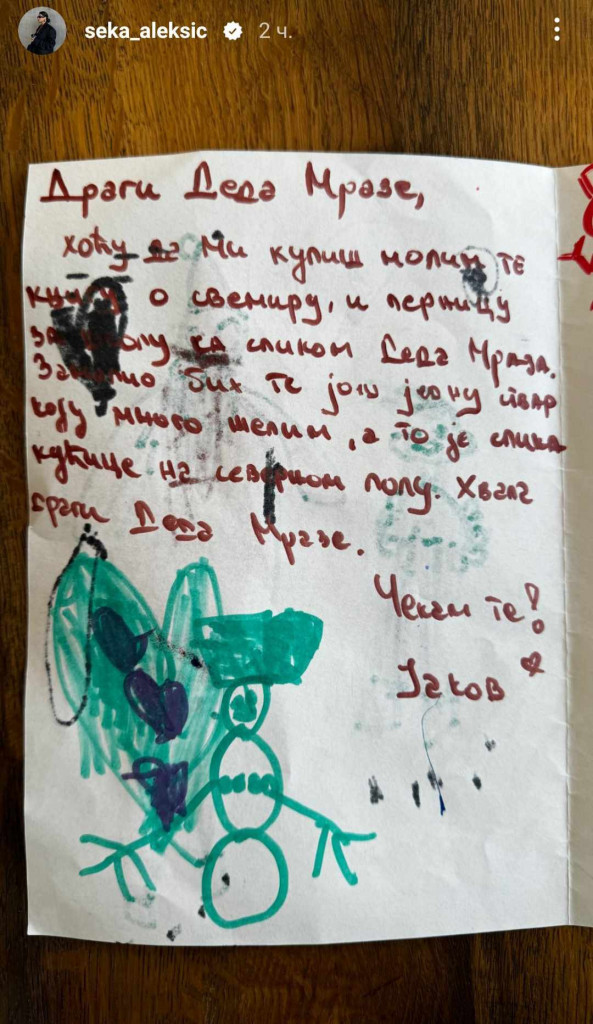 seka_aleksic 2 ч.
Драги Деда Мразе,
хоћу да ми купиш молим те
књигу о свемиру, и перницу
за школу са сликом Деда Мраза.
Замолио бих те још једну ствар
коју много желим, а то је слика
кућице на северном полу. Хвала
драги Деда Мразе.
Чекам те!
Јаков